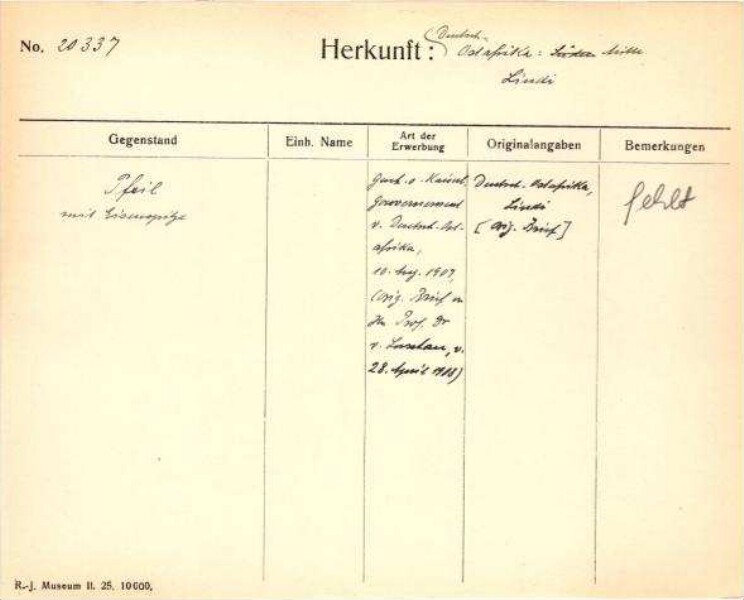 No. 20337
Herkunft: Deutsch-
Ostafrika: Süden Mitte
Lindi
Gegenstand
Einh. Name
Art der
Erwerbung
Originalangaben
Bemerkungen
Pfeil
mit Eisenspitze
Kaiserl.
Gouvernement
v. Deutsch-Ost-
afrika,
10. 1907,
(Orig. Brief
Hn Prof. Dr
v. Luschan, v.
28. April 1908)
Deutsch-Ostafrika,
Lindi
[Orig. Brief]
fehlt
R.-J. Museum II. 25. 10000.